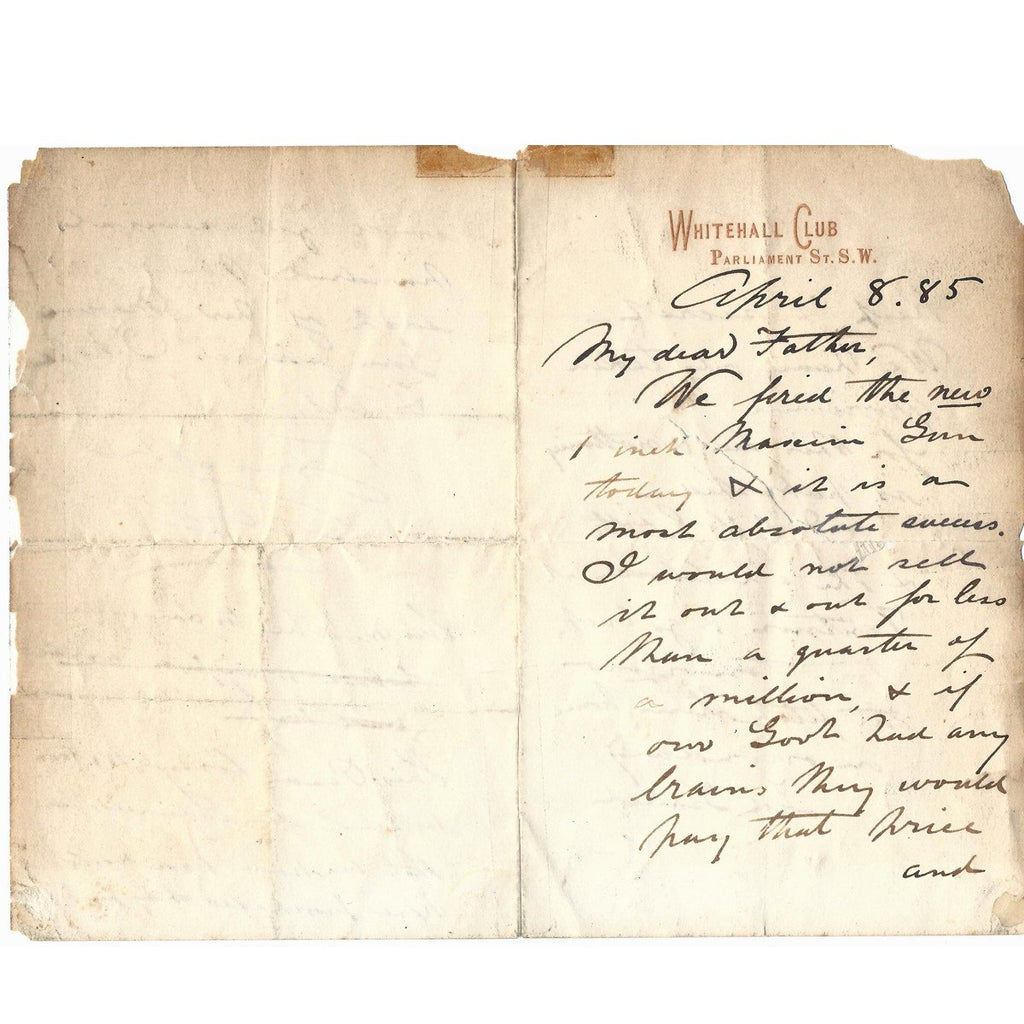 WHITEHALL CLUB
PARLIAMENT ST. S.W.
April 8. 85
My dear Father,
We fired the new
1 inch Maxim Gun
today & it is a
most absolute success.
I would not sell
it out & out for less
than a quarter of
a million, & if
our Govt had any
brains they would
pay that price
and